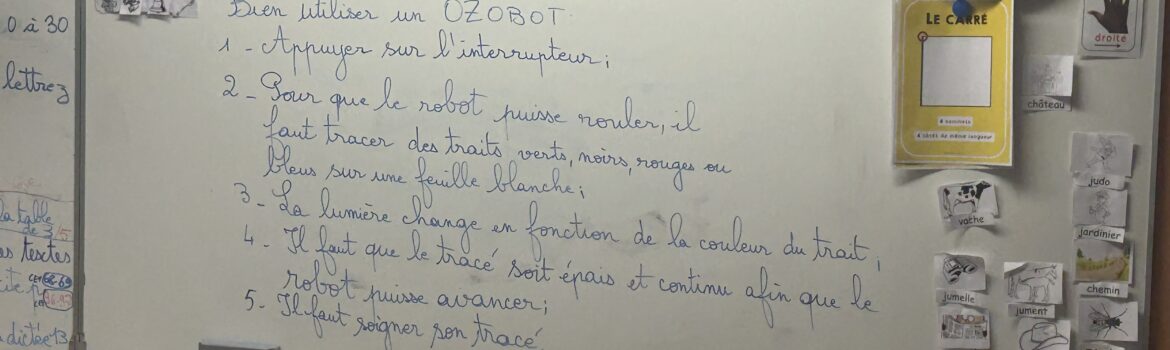 0 à 30
lettres
la table
de 3
textes
dictée 13
Bien utiliser un OZOBOT
1 - Appuyer sur l'interrupteur;
2 - Pour que le robot puisse rouler, il
faut tracer des traits verts, noirs, rouges ou
bleus sur une feuille blanche;
3 - La lumière change en fonction de la couleur du trait;
4 - Il faut que le tracé soit épais et continu afin que le
robot puisse avancer;
5 - Il faut soigner son tracé
LE CARRÉ
4 sommets
4 côtés de même longueur
droite
château
judo
vache
jardinier
chemin
jumelle
jument